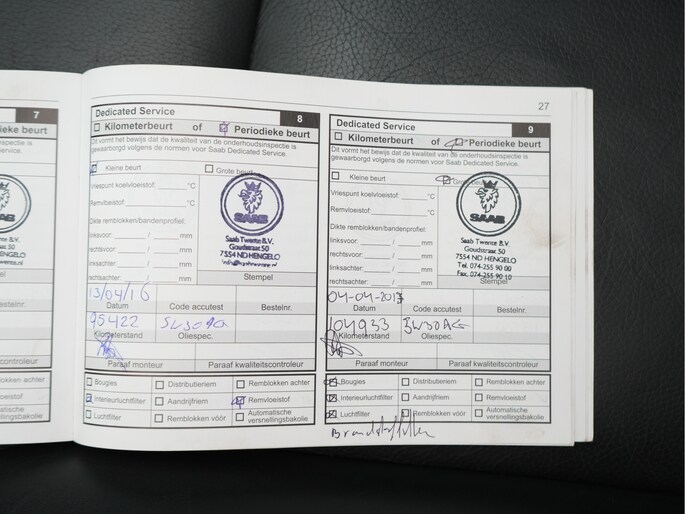 27
7
Dedicated Service
8
Kilometerbeurt of Periodieke beurt
Dit vormt het bewijs dat de kwaliteit van de onderhoudsinspectie is
gewaarborgd volgens de normen voor Saab Dedicated Service.
Kleine beurt
Grote beurt
Vriespunt koelvloeistof: °C
Remvloeistof: °C
Dikte remblokken/bandenprofiel:
linksvoor: / mm
rechtsvoor: / mm
linksachter: / mm
rechtsachter: / mm
SAAB
Saab Twente B.V.
Goudstraat 50
7554 ND HENGELO
Stempel
13/04/16
Datum
Code accutest
Bestelnr.
95422
5W30AG
Kilometerstand
Oliespec.
Paraaf monteur
Paraaf kwaliteitscontroleur
Bougies
Distributieriem
Remblokken achter
Interieurluchtfilter
Aandrijfriem
Remvloeistof
Luchtfilter
Remblokken vóór
Automatische
versnellingsbakolie
Dedicated Service
9
Kilometerbeurt of Periodieke beurt
Dit vormt het bewijs dat de kwaliteit van de onderhoudsinspectie is
gewaarborgd volgens de normen voor Saab Dedicated Service.
Kleine beurt
Vriespunt koelvloeistof: °C
Remvloeistof: °C
Dikte remblokken/bandenprofiel:
linksvoor: / mm
rechtsvoor: / mm
linksachter: / mm
rechtsachter: / mm
SAAB
Saab Twente B.V.
Goudstraat 50
7554 ND HENGELO
Tel. 074-255 90 00
Fax. 074-255 90 10
Stempel
04-04-2017
Datum
Code accutest
Bestelnr.
104933
5W30AG
Kilometerstand
Oliespec.
Paraaf monteur
Paraaf kwaliteitscontroleur
Bougies
Distributieriem
Remblokken achter
Interieurluchtfilter
Aandrijfriem
Remvloeistof
Luchtfilter
Remblokken vóór
Automatische
versnellingsbakolie
Brandstoffilter